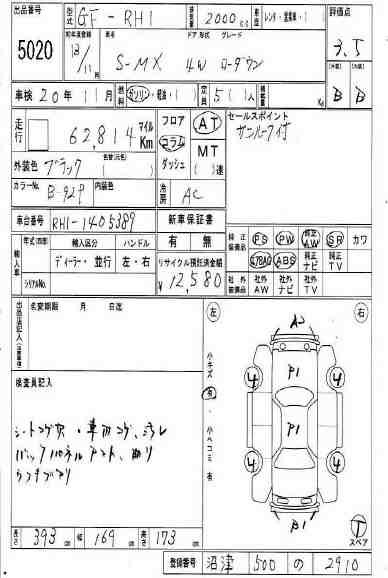 出品番号 5020
型式 GF-RH1 排気量 2000cc 車歴 レンタ・営業車・( ) 評価点 3.5
初年度登録 13/11 ドア 形式 グレード
S-MX 4W ローダウン
車検 20年11月 燃料 ガソリン・軽油・( ) 定員 5( )人 積載量 Kg B B
走行 62,814 マイル Km フロア コラム ダッシュ AT MT ( )速
セールスポイント
サンルーフ付
外装色 ブラック 色替(元色)
カラーNo. B-92P 内装色 冷房 AC
車台番号 RH1-1405389 新車保証書
純正装備品 PS PW 純正AW SR カワ
エアB ABS 純正ナビ 純正TV
輸入車 年式(M) 輸入区分 ハンドル 有 無
ディーラー・並行 左・右 リサイクル預託済金額
シリアルNo. ¥12,580
社外装備品 社外AW 社外ナビ 社外TV
名変期限 月 日迄
左 右
検査員記入
A2
小キズ 有・小ヘコミ 有
4 P1 4
シートコゲ穴・車内コゲ、汚レ
P1
4 4
B1
長さ 393 幅 169 高さ 173 T スペア
登録番号 沼津 500 の 2910